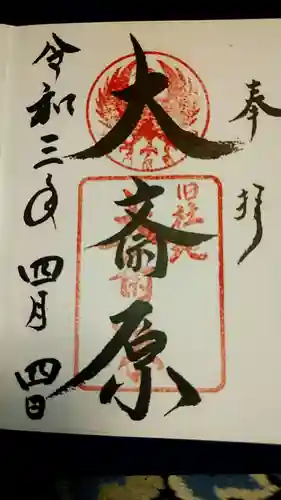 奉拝
大斎原
旧社地
令和三年四月四日